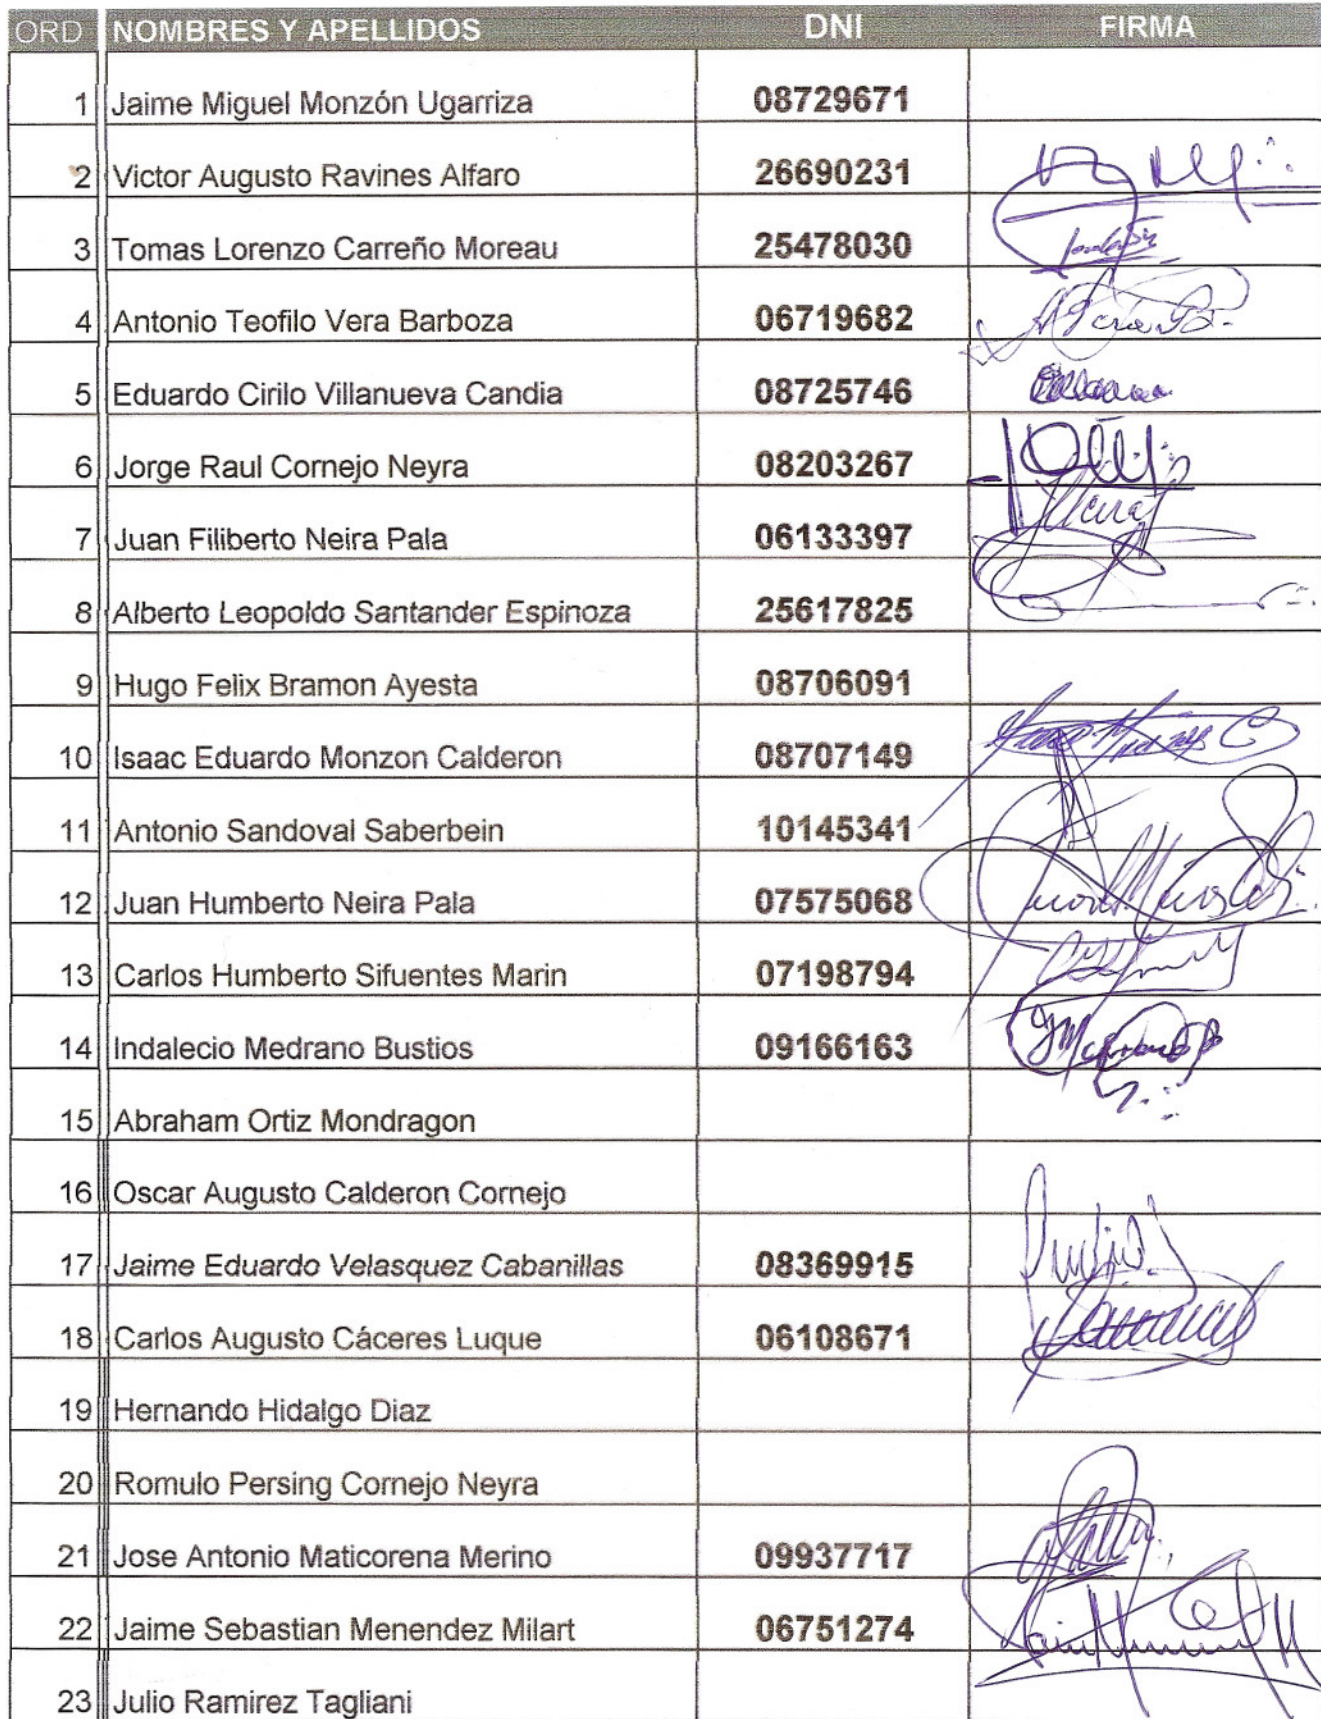 ORD NOMBRES Y APELLIDOS DNI FIRMA
1 Jaime Miguel Monzón Ugarriza 08729671
2 Victor Augusto Ravines Alfaro 26690231
3 Tomas Lorenzo Carreño Moreau 25478030
4 Antonio Teofilo Vera Barboza 06719682
5 Eduardo Cirilo Villanueva Candia 08725746
6 Jorge Raul Cornejo Neyra 08203267
7 Juan Filiberto Neira Pala 06133397
8 Alberto Leopoldo Santander Espinoza 25617825
9 Hugo Felix Bramon Ayesta 08706091
10 Isaac Eduardo Monzon Calderon 08707149
11 Antonio Sandoval Saberbein 10145341
12 Juan Humberto Neira Pala 07575068
13 Carlos Humberto Sifuentes Marin 07198794
14 Indalecio Medrano Bustios 09166163
15 Abraham Ortiz Mondragon
16 Oscar Augusto Calderon Cornejo
17 Jaime Eduardo Velasquez Cabanillas 08369915
18 Carlos Augusto Cáceres Luque 06108671
19 Hernando Hidalgo Diaz
20 Romulo Persing Cornejo Neyra
21 Jose Antonio Maticorena Merino 09937717
22 Jaime Sebastian Menendez Milart 06751274
23 Julio Ramirez Tagliani